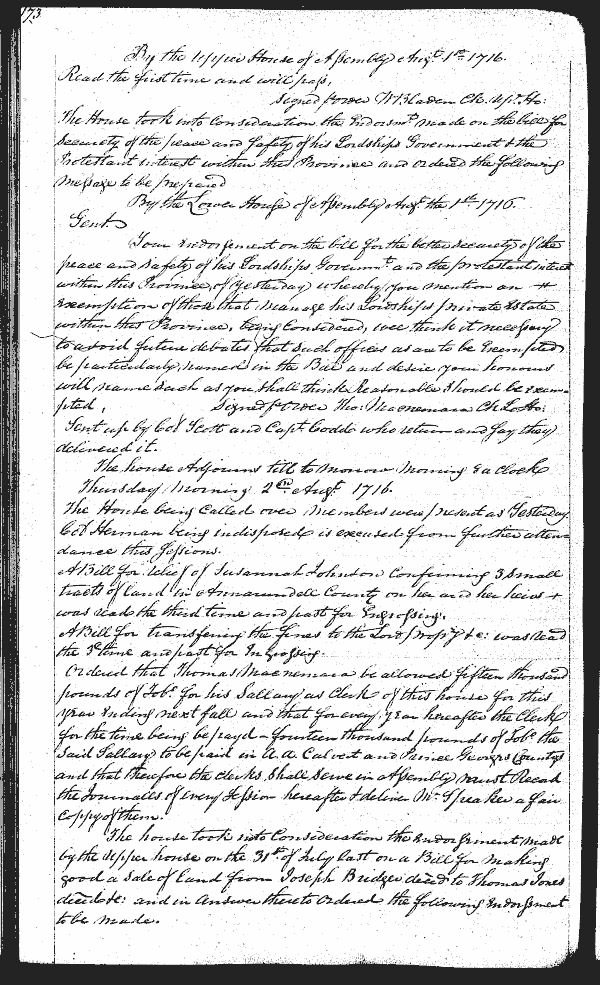 173
By the Upper House of Assembly Augt. 1st 1716.
Read the first time and will pass,
Signed p order W Bladen Ck. up. Ho:
The House took into Consideration the Endorsmt. made on the bill for
Security of the peace and Safety of his Lordships Government & the
Protestant interest within this Province and ordered the following
Message to be prepared
By the Lower House of Assembly Augt. the 1st 1716.
Gent.
Your Endorsement on the bill for the better Security of the
peace and Safety of his Lordships Governmt. and the protestant interest
within this Province, of Yesterday whereby you mention an
Exemption of those that manage his Lordships private Estate
within this Province, being Considered, wee think it necessary
to avoid future debates that such offices as are to be Exempted
be particularly named in the Bill and desire your honours
will name such as you shall think Reasonable should be exem-
pted, Signed p order Tho: Macnemara Ck Lo Ho:
Sent up by Col Scott and Capt. Codde who return and say they
delivered it.
The house Adjourns till to Morrow Morning 8 a Clock
Thursday Morning 2d Augt. 1716.
The House being Called over Members were present as Yesterday.
Col Herman being indisposed is excused from further atten-
dance this Sessions.
A Bill for relief of Susannah Johnson Confirming 3 Small
tracts of land in Annarundell County on her and her heirs +
was read the third time and past for Engrossing.
A Bill for transfering the fines to the Lord Propry &c: was read
the 3d time and past for Ingrossing.
Ordered that Thomas Macnemara be allowed fifteen thousand
pounds of Tobo. for his Sallary as Clerk of this house for this
year Ending next fall and that for every year hereafter the Clerk
for the time being be payd fourteen thousand pounds of Tobo. the
Said Sallary to be paid in A. A. Calvert and Prince Georges Countys
and that therefore the clerks Shall Serve in Assembly must Record
the Journalls of every Session hereafter & deliver Mr. Speaker a fair
Coppy of them.
The house took into Consideration the Endorsment made
by the Upper house on the 31st of July last on a Bill for making
good a Sale of land from Joseph Bridge decd to Thomas Jones
decd &c: and in Answer thereto ordered the following Endorsment
to be made.